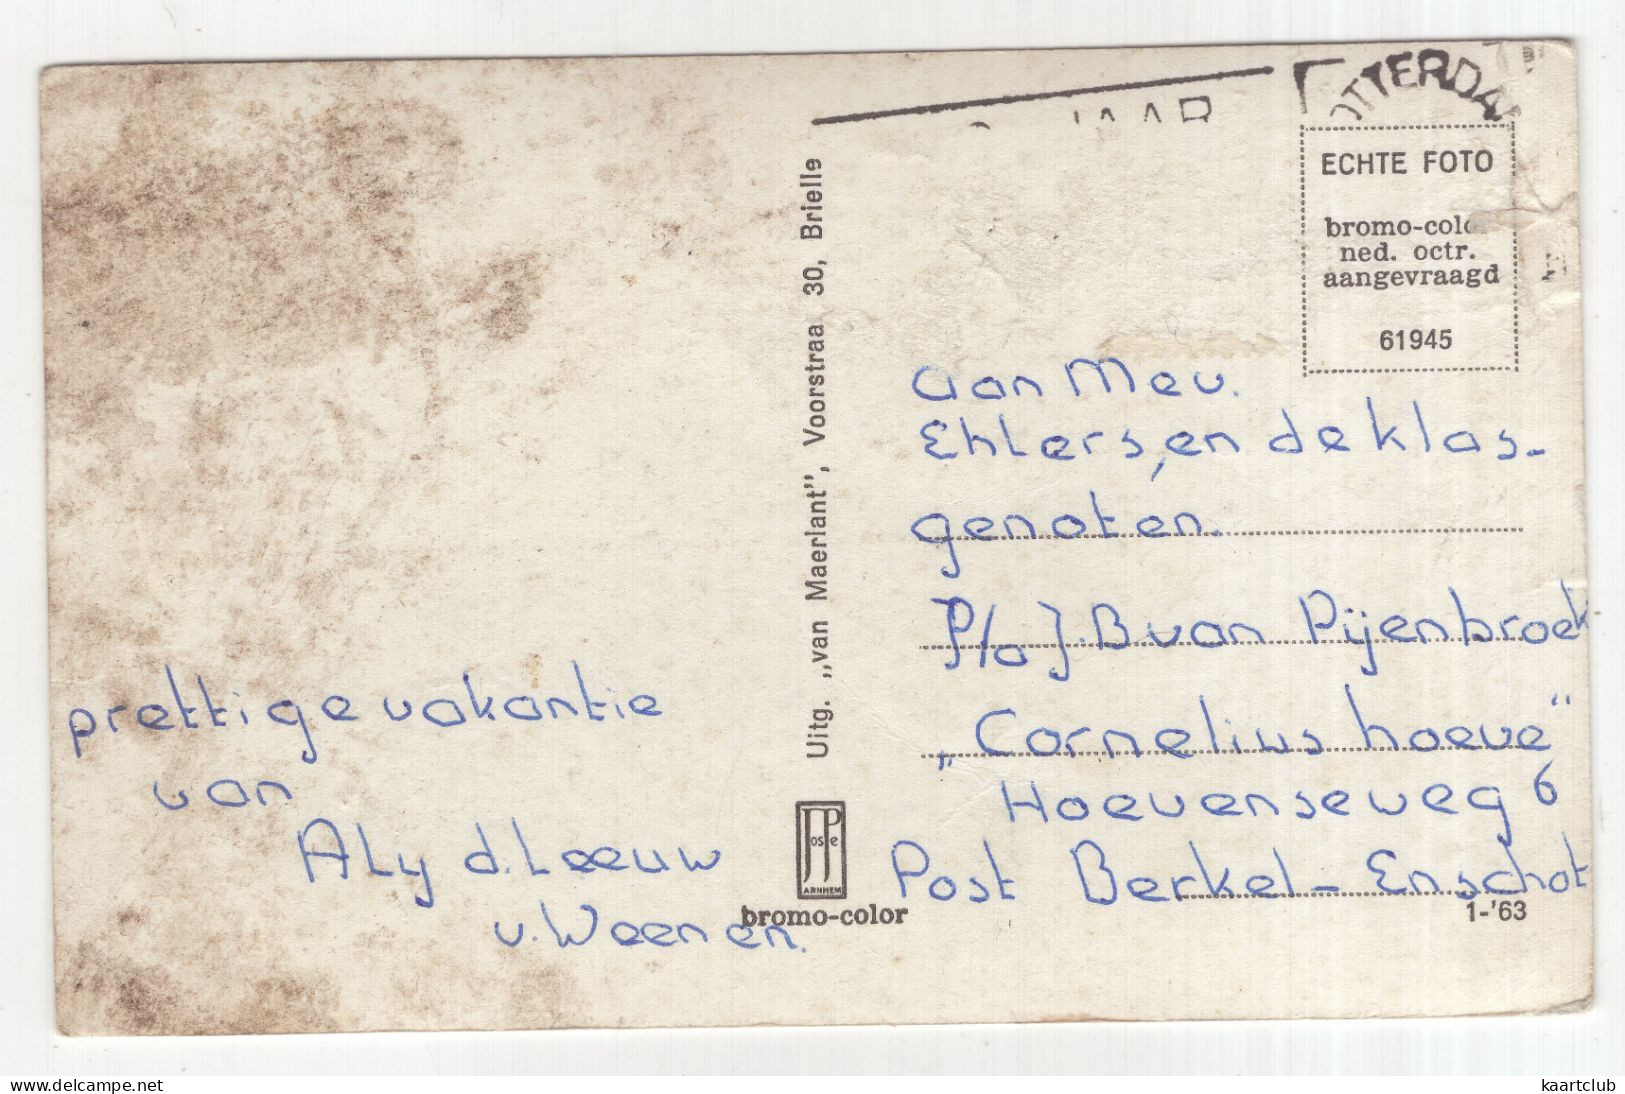 prettige vakantie
van
Aly d. Leeuw
v. Weenen.
Uitg. „van Maerlant", Voorstraa 30, Brielle
JosPe
ARNHEM
bromo-color
JAAR
OTTERDA
ECHTE FOTO
bromo-color
ned. octr.
aangevraagd
61945
aan Mev.
Ehlers, en de klas-
genoten.
P/o J. B van Pijenbroek
„Cornelius hoeve"
Hoevenseweg 6
Post Berkel - Enschot
1-'63
www.delcampe.net
kaartclub